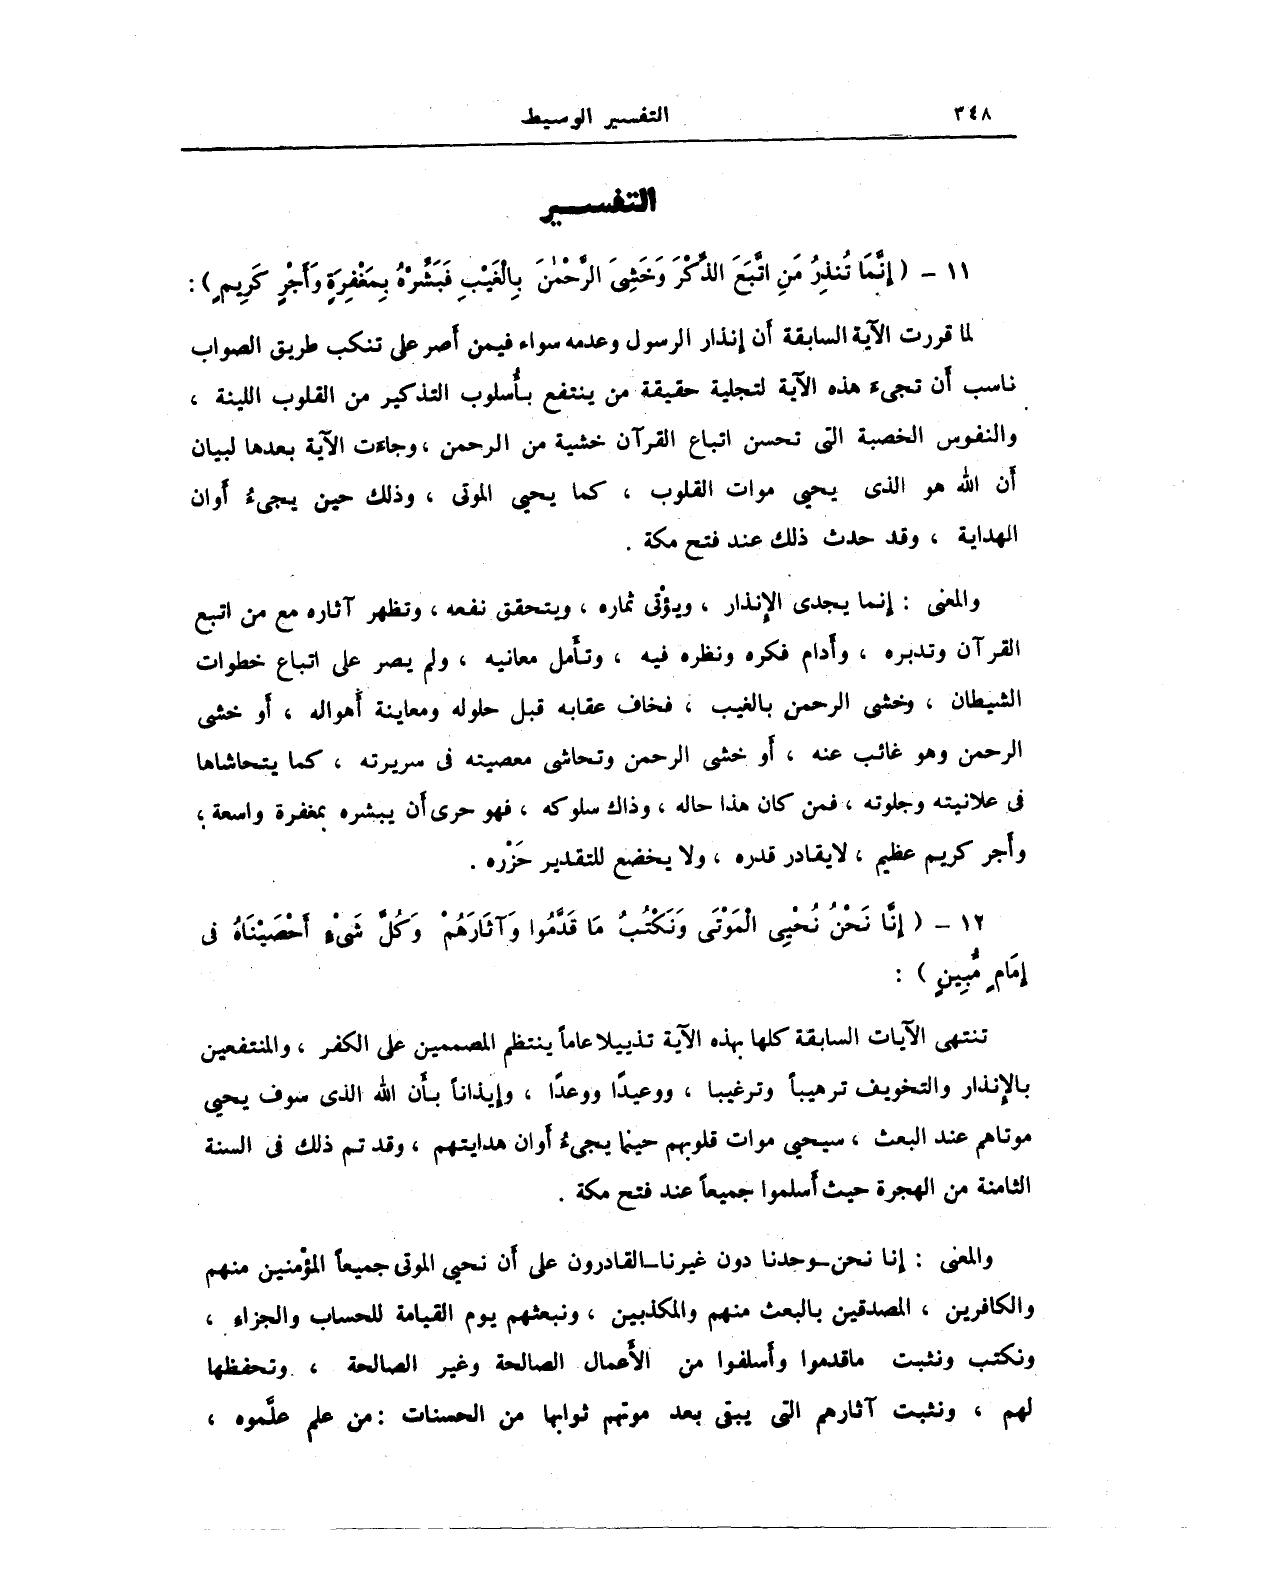 ٣٤٨
التفسير الوسيط
التفسير
١١ - ( إِنَّمَا تُنذِرُ مَنِ اتَّبَعَ الذِّكْرَ وَخَشِىَ الرَّحْمَٰنَ بِالْغَيْبِ فَبَشِّرْهُ بِمَغْفِرَةٍ وَأَجْرٍ كَرِيمٍ ) :
لما قررت الآية السابقة أن إنذار الرسول وعدمه سواء فيمن أصر على تنكب طريق الصواب
ناسب أن تجىء هذه الآية لتجلية حقيقة من ينتفع بأُسلوب التذكير من القلوب اللينة ،
والنفوس الخصبة التى تحسن اتباع القرآن خشية من الرحمن ، وجاءت الآية بعدها لبيان
أن الله هو الذى يحيى موات القلوب ، كما يحيى الموتى ، وذلك حين يجىءُ أوان
الهداية ، وقد حدث ذلك عند فتح مكة .
والمعنى : إنما يجدى الإنذار ، ويؤْتى ثماره ، ويتحقق نفعه ، وتظهر آثاره مع من اتبع
القرآن وتدبره ، وأدام فكره ونظره فيه ، وتأمل معانيه ، ولم يصر على اتباع خطوات
الشيطان ، وخشى الرحمن بالغيب ، فخاف عقابه قبل حلوله ومعاينة أهواله ، أو خشى
الرحمن وهو غائب عنه ، أو خشى الرحمن وتحاشى معصيته فى سريرته ، كما يتحاشاها
فى علانيته وجلوته ، فمن كان هذا حاله ، وذاك سلوكه ، فهو حرى أن يبشره بمغفرة واسعة ؛
وأجر كريم عظيم ، لايقادر قدره ، ولا يخضع للتقدير حَزْره .
١٢ - ( إِنَّا نَحْنُ نُحْيِى الْمَوْتَى وَنَكْتُبُ مَا قَدَّمُوا وَآثَارَهُمْ وَكُلَّ شَىْءٍ أَحْصَيْنَاهُ فِى
إِمَامٍ مُّبِينٍ ) :
تنتهى الآيات السابقة كلها بهذه الآية تذييلا عاماً ينتظم المصممين على الكفر ، والمنتفعين
بالإنذار والتخويف ترهيباً وترغيبا ، ووعيدًا ووعدًا ، وإيذاناً بأن الله الذى سوف يحيى
موتاهم عند البعث ، سيحيى موات قلوبهم حينما يجىءُ أوان هدايتهم ، وقد تم ذلك فى السنة
الثامنة من الهجرة حيث أسلموا جميعاً عند فتح مكة .
والمعنى : إنا نحن - وحدنا دون غيرنا - القادرون على أن نحيى الموتى جميعاً المؤْمنين منهم
والكافرين ، المصدقين بالبعث منهم والمكذبين ، ونبعثهم يوم القيامة للحساب والجزاء ،
ونكتب ونثبت ماقدموا وأسلفوا من الأَعمال الصالحة وغير الصالحة ، ونحفظها
لهم ، ونثبت آثارهم التى يبقى بعد موتهم ثوابها من الحسنات : من علم علَّموه ،